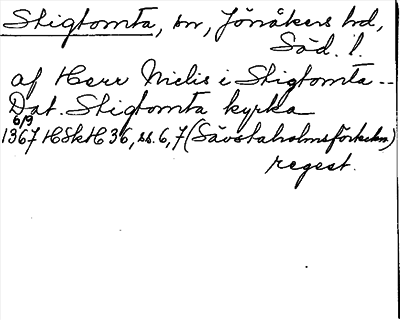 Stigtomta, sn, Jönåkers hd,
Söd. l.
af Herr Nielis i Stigtomta --
Dat. Stigtomta kyrka
6/9
1367 HSkH 36, ss. 6, 7 (Sävstaholmsförteckn)
regest.